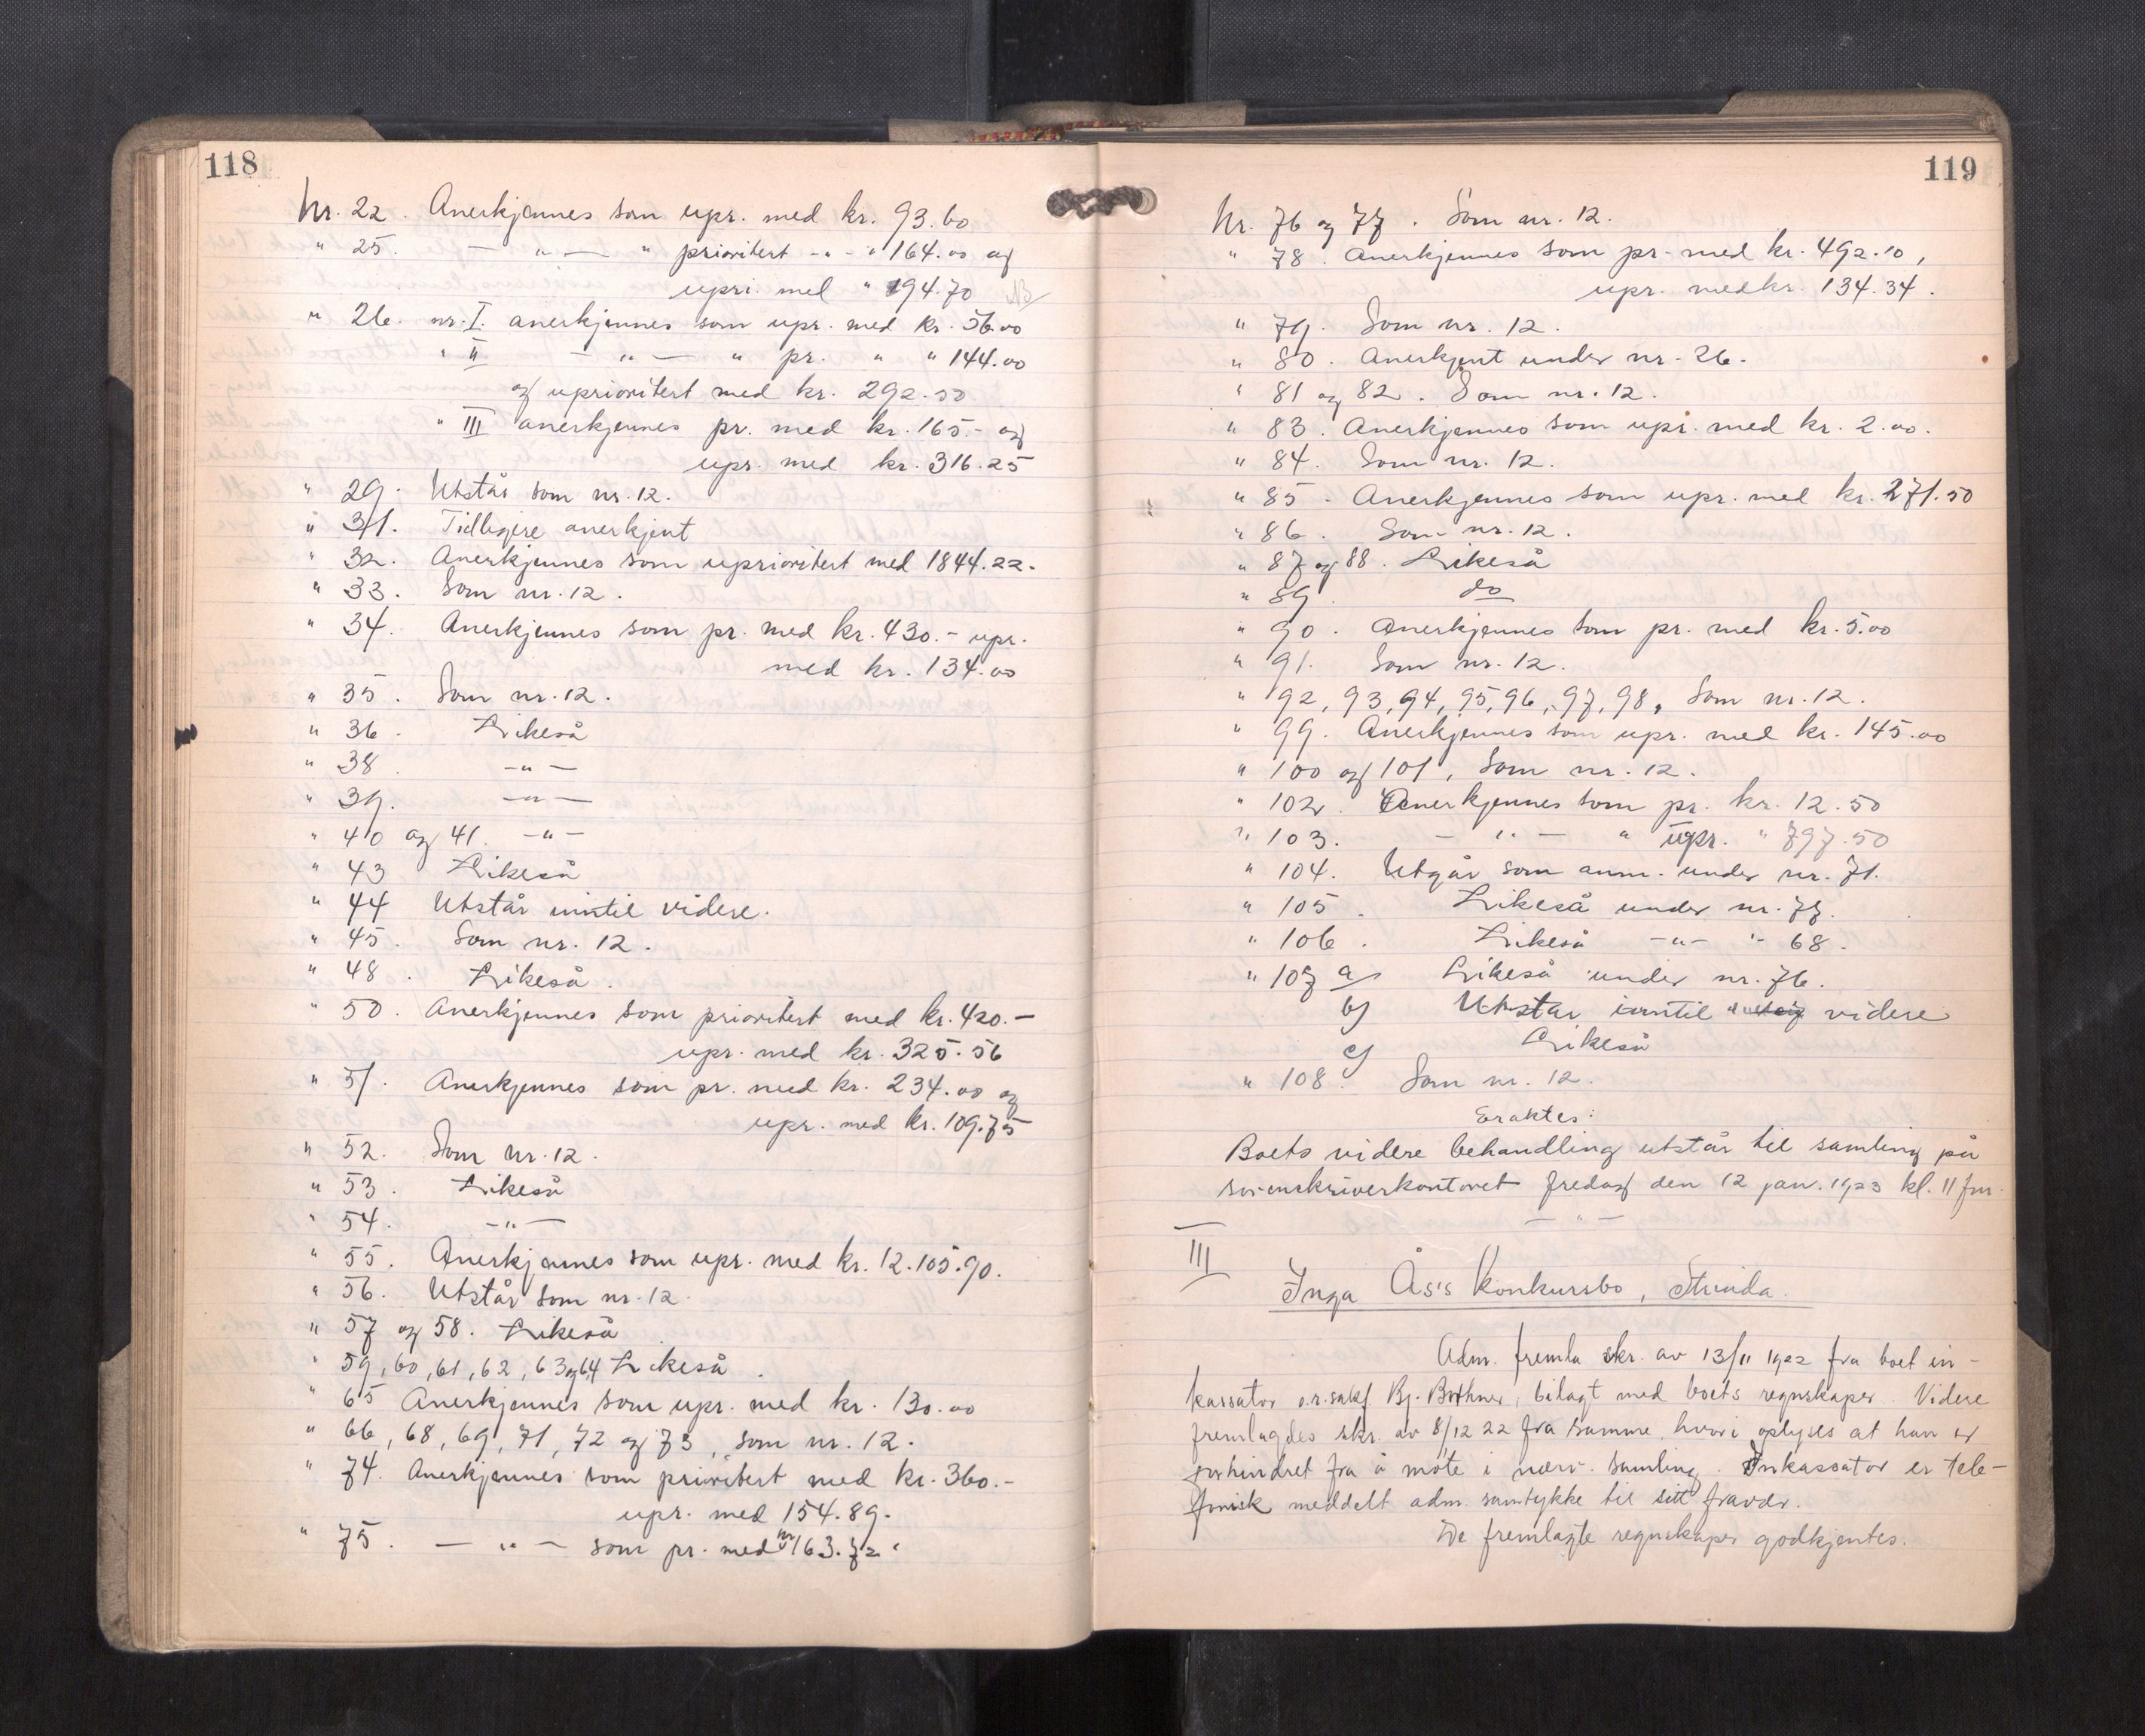 118
Nr. 22. Anerkjennes som upr. med kr. 93.60
" 25. — " — " prioritert - " - " 164.00 og
upri. med " 194.70 NB
" 26. nr. I. anerkjennes som upr. med kr. 56.00
" II — " — " pr. " " 144.00
og uprioritert med kr. 292.50
" III anerkjennes pr. med kr. 165.- og
upr. med kr. 316.25
" 29. Utstår som nr. 12.
" 31. Tidligere anerkjent
" 32. Anerkjennes som uprioritert med 1844.22.
" 33. Som nr. 12.
" 34. Anerkjennes som pr. med kr. 430.- upr.
med kr. 134.00
" 35. Som nr. 12.
" 36. Likeså
" 38. — " —
" 39. — " —
" 40 og 41. — " —
" 43 Likeså
" 44 Utstår inntil videre.
" 45. Som nr. 12.
" 48. Likeså.
" 50. Anerkjennes som prioritert med kr. 420.-
upr. med kr. 325.56
" 51. Anerkjennes som pr. med kr. 234.00 og
upr. med kr. 109.75
" 52. Som nr. 12.
" 53. Likeså
" 54. — " —
" 55. Anerkjennes som upr. med kr. 12.105.90.
" 56. Utstår som nr. 12.
" 57 og 58. Likeså
" 59, 60, 61, 62, 63 og 64 Likeså.
" 65 Anerkjennes som upr. med kr. 130.00
" 66, 68, 69, 71, 72 og 73, som nr. 12.
" 74. Anerkjennes som prioritert med kr. 360.-
upr. med 154.89.
" 75. — " — som pr. med kr 163.72.
119
Nr. 76 og 77. Som nr. 12.
" 78. Anerkjennes som pr. med kr. 492.10,
upr. med kr. 134.34.
" 79. Som nr. 12.
" 80. Anerkjent under nr. 26.
" 81 og 82. Som nr. 12.
" 83. Anerkjennes som upr. med kr. 2.00.
" 84. Som nr. 12.
" 85. Anerkjennes som upr. med kr. 271.50
" 86. Som nr. 12.
" 87 og 88. Likeså
" 89. do
" 90. Anerkjennes som pr. med kr. 5.00
" 91. Som nr. 12.
" 92, 93, 94, 95, 96, 97, 98, Som nr. 12.
" 99. Anerkjennes som upr. med kr. 145.00
" 100 og 101, Som nr. 12.
" 102. Anerkjennes som pr. kr. 12.50
" 103. — " — " upr. " 797.50
" 104. Utgår som anm. under nr. 71.
" 105. Likeså under nr. 77.
" 106. Likeså — " — " 68.
" 107 a) Likeså under nr. 76.
b) Utstår inntil videre
c) Likeså
" 108. Som nr. 12.
Eraktes:
Boets videre behandling utstår til samling på
sorenskriverkontoret fredag den 12 jan. 1923 kl. 11 fm.
— " —
III
Inga Ås's Konkursbo, Strinda.
Adm. fremla skr. av 13/11 1922 fra boet in-
kassator o.r.sakf. Bj. Bothner, bilagt med boets regnskaper. Videre
fremlagdes skr. av 8/12 22 fra samme, hvori oplyses at han er
forhindret fra å møte i nærv. samling. Inkassator er tele-
fonisk meddelt adm. samtykke til sitt fravær.
De fremlagte regnskaper godkjentes.